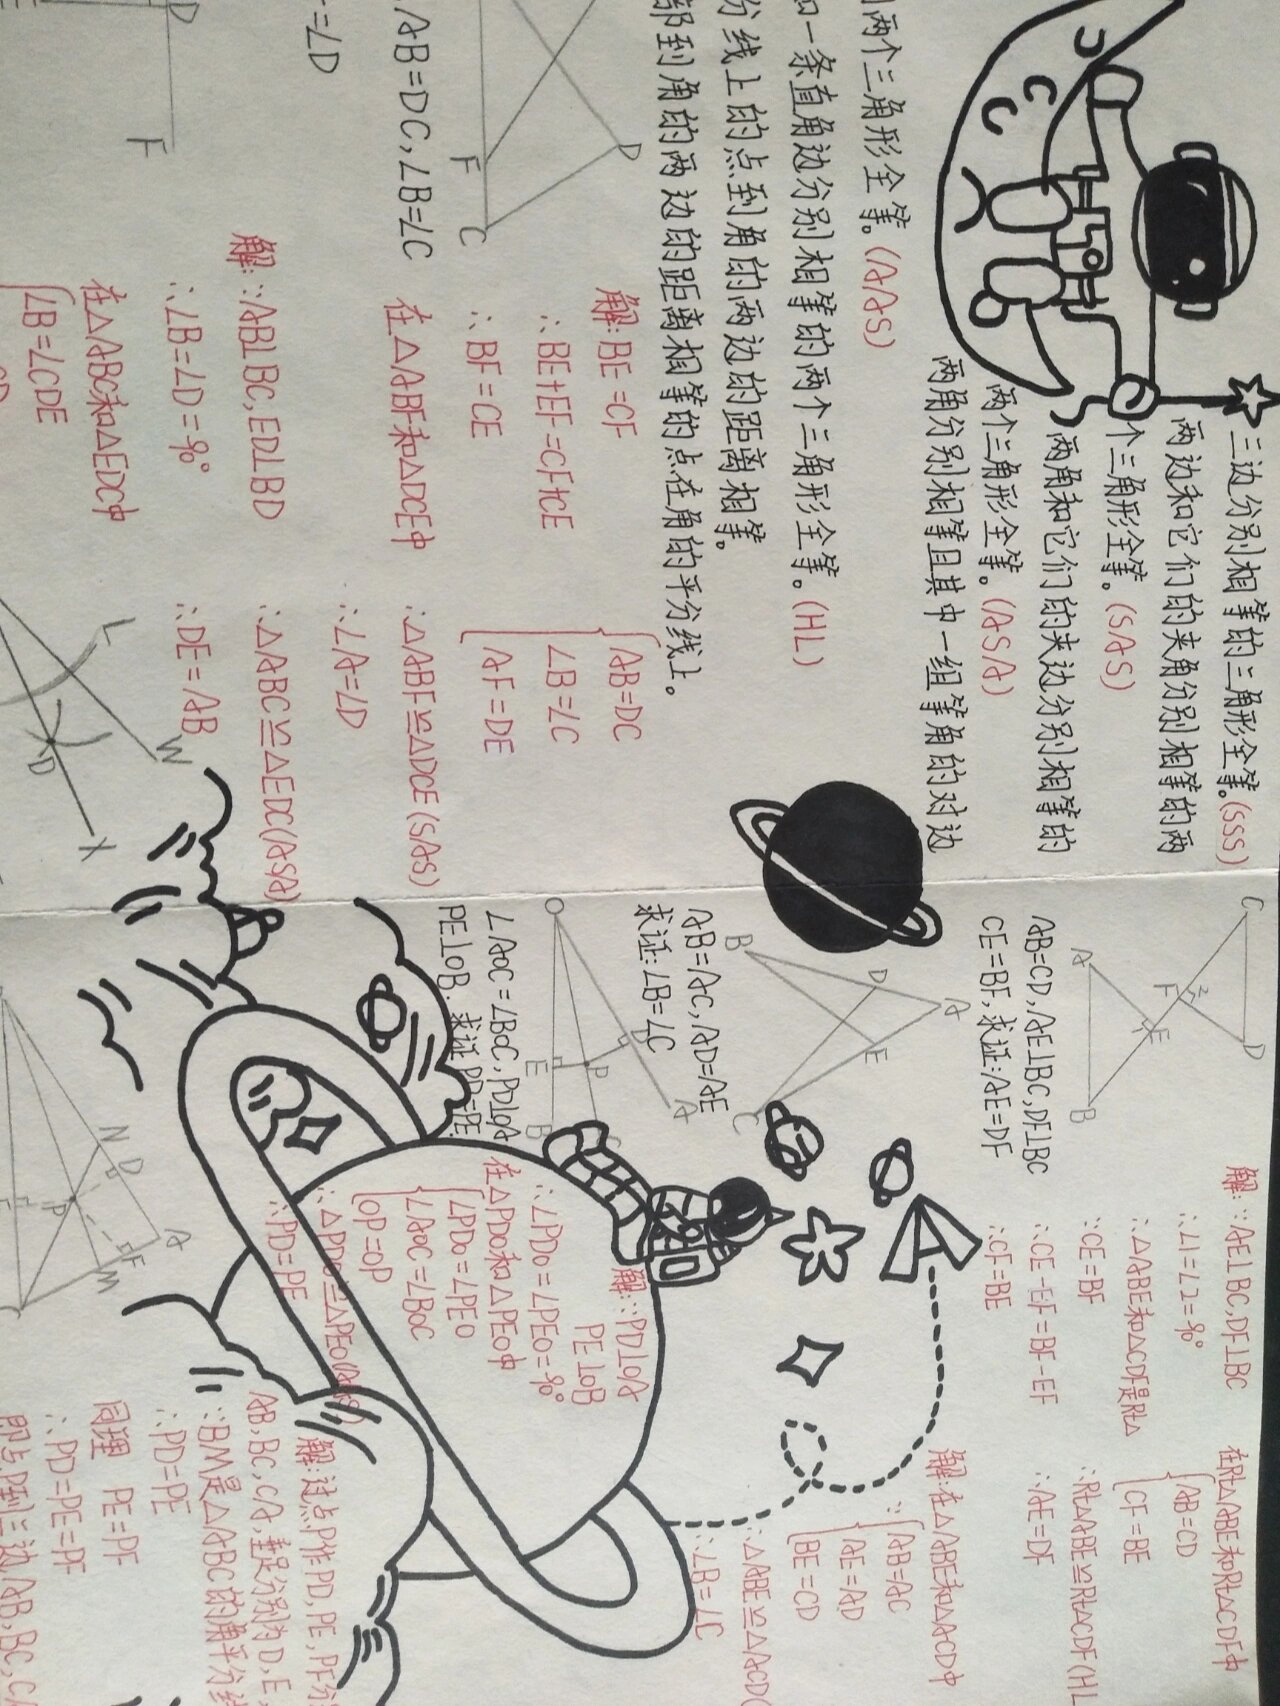 三边分别相等的三角形全等。(SSS)
两边和它们的夹角分别相等的两
个三角形全等。(SAS)
两角和它们的夹边分别相等的
两个三角形全等。(ASA)
两角分别相等且其中一组等角的对边
两个三角形全等。(AAS)
一条直角边分别相等的两个三角形全等。(HL)
分线上的点到角的两边的距离相等。
部到角的两边的距离相等的点在角的平分线上。
D
F
C
AB=DC,∠B=∠C
=∠D
解:BE=CF
∴BE+EF=CF+CE
∴BF=CE
在△ABF和△DCE中
AB=DC
∠B=∠C
AF=DE
∴△ABF≌△DCE(SAS)
∴∠A=∠D
D
F
解:∵AB⊥BC,ED⊥BD
∴∠B=∠D=90°
在△ABC和△EDC中
∠B=∠CDE
∴△ABC≌△EDC(ASA)
∴DE=AB
L
W
D
X
C
D
F
2
E
A
B
AB=CD,AE⊥BC,DF⊥BC
CE=BF,求证:AE=DF
解:∵AE⊥BC,DF⊥BC
∴∠1=∠2=90°
∴△ABE和△CDF是Rt△
∵CE=BF
∴CE-EF=BF-EF
∴CF=BE
在Rt△ABE和Rt△CDF中
AB=CD
CF=BE
∴Rt△ABE≌Rt△CDF(HL
∴AE=DF
A
D
B
E
C
AB=AC,AD=AE
求证:∠B=∠C
解:在△ABE和△ACD中
∵AB=AC
AE=AD
BE=CD
∴△ABE≌△ACD(
∴∠B=∠C
O
D
A
P
E
B
∠AOC=∠BOC,PD⊥OA
PE⊥OB.求证PD=PE
解:∵PD⊥OA
PE⊥OB
∴∠PDO=∠PEO=90°
在△PDO和△PEO中
∠PDO=∠PEO
∠AOC=∠BOC
OP=OP
∴△PDO≌△PEO(AAS)
∴PD=PE
N
D
A
P
F
M
解:过点P作PD,PE,PF分
AB,BC,CA,垂足分别为D,E,
∵BM是△ABC的角平分线
∴PD=PE
同理 PE=PF
∴PD=PE=PF
即点P到三边AB,BC,CA